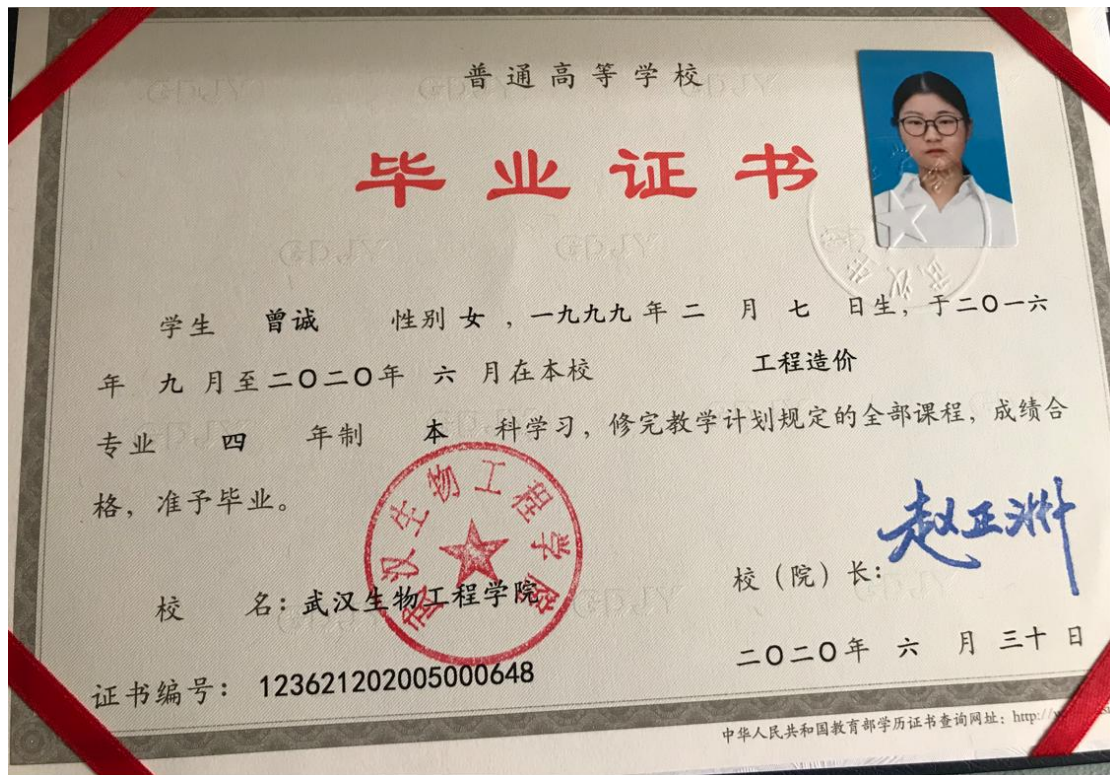 普通高等学校
毕业证书
学生 曾诚 性别 女 ，一九九九 年 二 月 七 日生，于二〇一六
年 九 月至二〇二〇年 六 月在本校 工程造价
专业 四 年制 本 科学习，修完教学计划规定的全部课程，成绩合
格，准予毕业。
武汉生物工程学院
校 名：武汉生物工程学院
校（院）长：赵正洲
证书编号：123621202005000648
二〇二〇年 六 月 三十 日
中华人民共和国教育部学历证书查询网址：http://